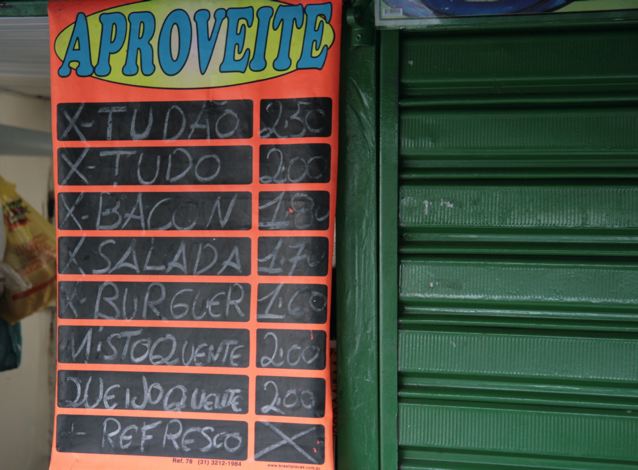 APROVEITE
X-TUDÃO 2,50
X-TUDO 2,00
X-BACON 1,80
X-SALADA 1,70
X-BURGUER 1,60
MISTOQUENTE 2,00
QUEIJOQUENTE 2,00
+ REFRESCO X
Ref. 78 (31) 3212-1984